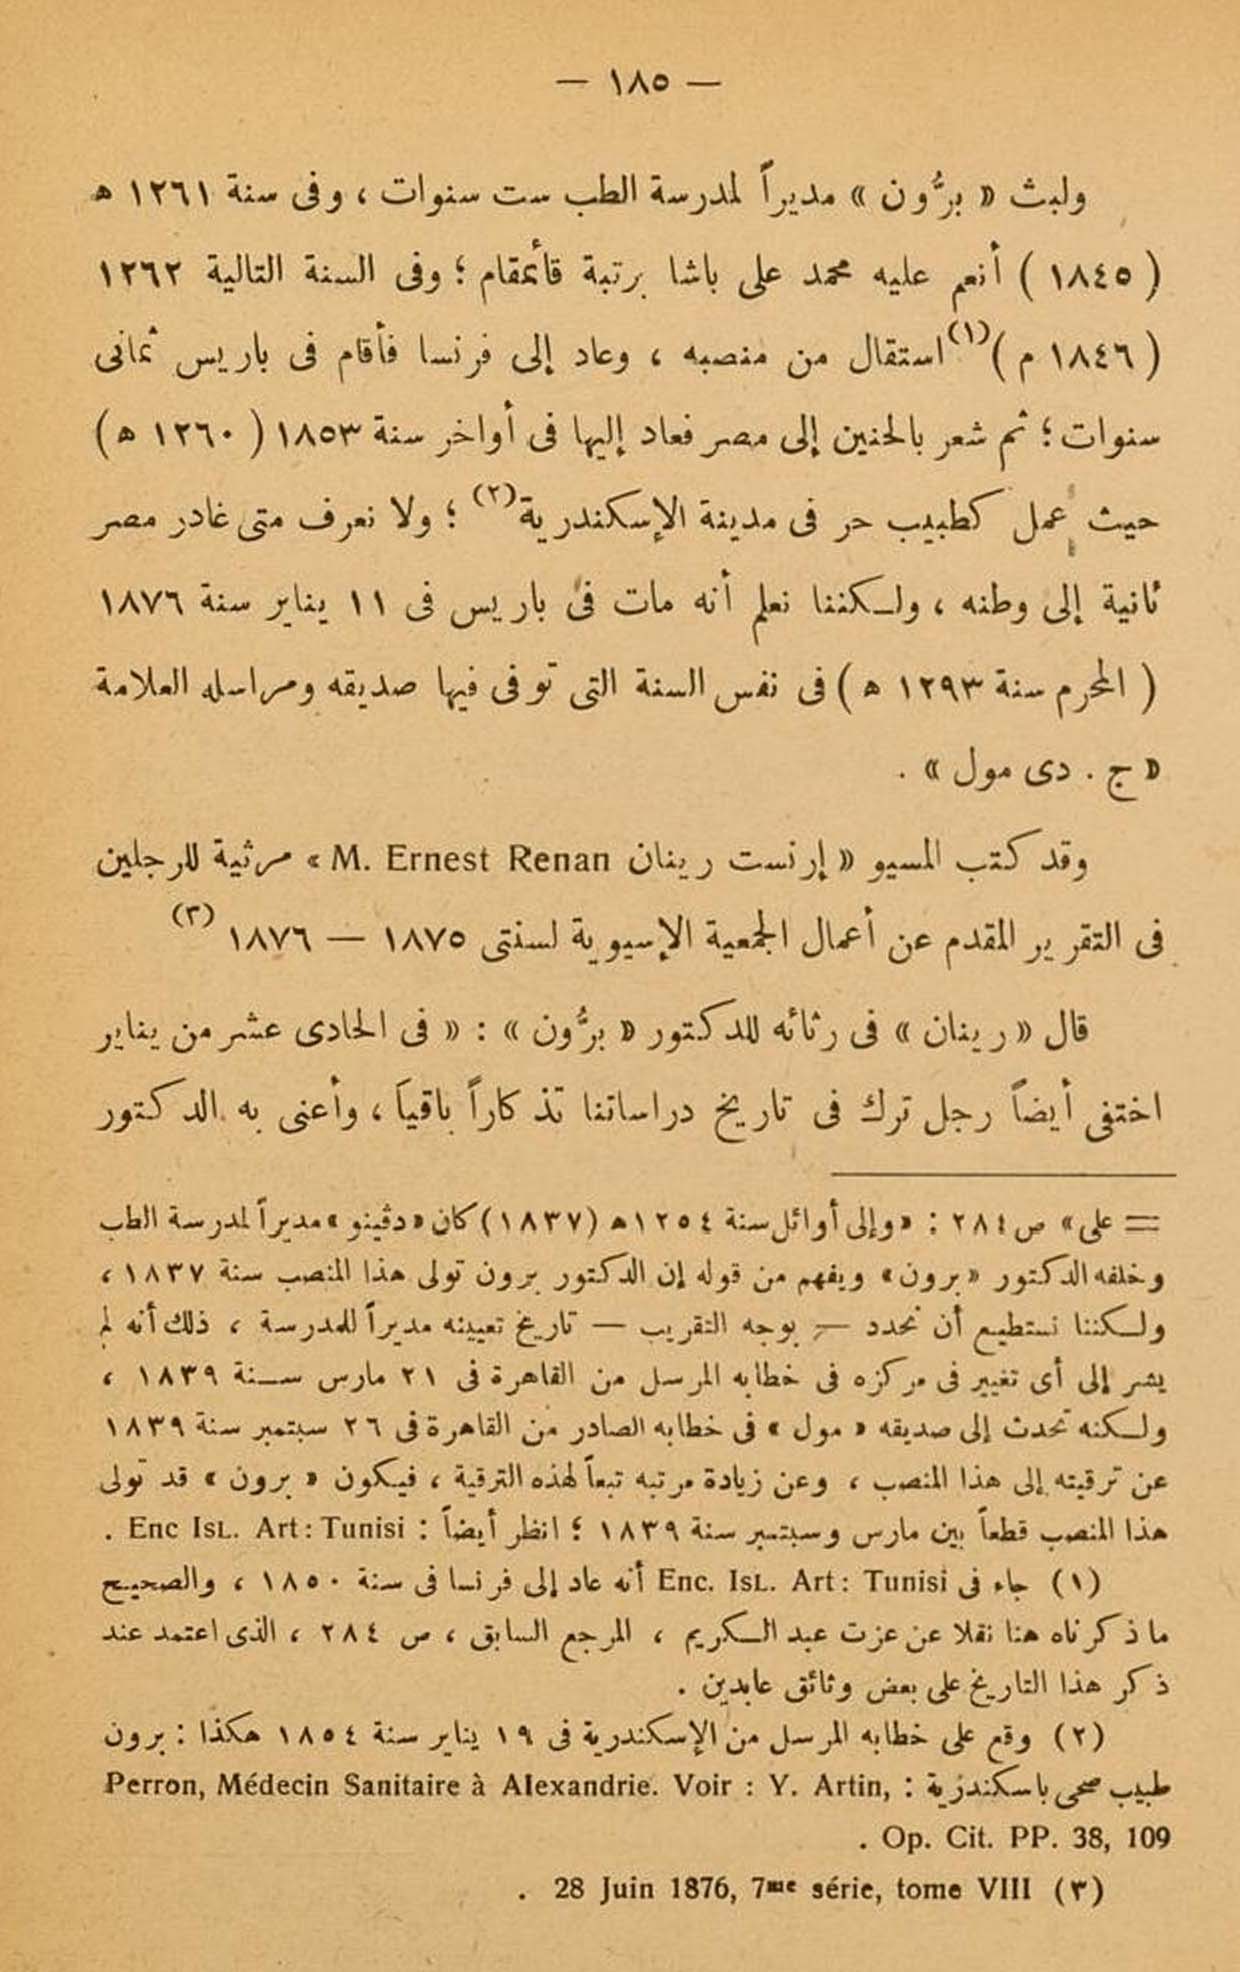 — ١٨٥ —
ولبث « برُّون » مديراً لمدرسة الطب ست سنوات ، وفى سنة ١٢٦١ هـ
( ١٨٤٥ ) أنعم عليه محمد على باشا برتبة قائمقام ؛ وفى السنة التالية ١٢٦٢
( ١٨٤٦ م )(١) استقال من منصبه ، وعاد إلى فرنسا فأقام فى باريس ثمانى
سنوات ؛ ثم شعر بالحنين إلى مصر فعاد إليها فى أواخر سنة ١٨٥٣ ( ١٢٦٠ هـ )
حيث عمل كطبيب حر فى مدينة الإسكندرية(٢) ؛ ولا نعرف متى غادر مصر
ثانية إلى وطنه ، ولكننا نعلم أنه مات فى باريس فى ١١ يناير سنة ١٨٧٦
( المحرم سنة ١٢٩٣ هـ ) فى نفس السنة التى توفى فيها صديقه ومراسله العلامة
« ج . دى مول » .
وقد كتب المسيو « إرنست رينان M. Ernest Renan » مرثية للرجلين
فى التقرير المقدم عن أعمال الجمعية الإسيوية لسنتى ١٨٧٥ — ١٨٧٦ (٣)
قال « رينان » فى رثائه للدكتور « برُّون » : « فى الحادى عشر من يناير
اختفى أيضاً رجل ترك فى تاريخ دراساتنا تذكاراً باقياً ، وأعنى به الدكتور
= على » ص ٢٨٤ : « وإلى أوائل سنة ١٢٥٤ هـ (١٨٣٧) كان « دڤينو » مديراً لمدرسة الطب
وخلفه الدكتور « برون » ويفهم من قوله إن الدكتور برون تولى هذا المنصب سنة ١٨٣٧ ،
ولكننا نستطيع أن نحدد — بوجه التقريب — تاريخ تعيينه مديراً للمدرسة ، ذلك أنه لم
يشر إلى أى تغيير فى مركزه فى خطابه المرسل من القاهرة فى ٢١ مارس سنة ١٨٣٩ ،
ولكنه تحدث إلى صديقه « مول » فى خطابه الصادر من القاهرة فى ٢٦ سبتمبر سنة ١٨٣٩
عن ترقيته إلى هذا المنصب ، وعن زيادة مرتبه تبعاً لهذه الترقية ، فيكون « برون » قد تولى
هذا المنصب قطعاً بين مارس وسبتمبر سنة ١٨٣٩ ؛ انظر أيضاً : Enc IsL. Art : Tunisi .
(١) جاء فى Enc. IsL. Art : Tunisi أنه عاد إلى فرنسا فى سنة ١٨٥٠ ، والصحيح
ما ذكرناه هنا نقلا عن عزت عبد الكريم ، المرجع السابق ، ص ٢٨٤ ، الذى اعتمد عند
ذكر هذا التاريخ على بعض وثائق عابدين .
(٢) وقع على خطابه المرسل من الإسكندرية فى ١٩ يناير سنة ١٨٥٤ هكذا : برون
طبيب صحى باسكندرية : Perron, Médecin Sanitaire à Alexandrie. Voir : Y. Artin,
Op. Cit. PP. 38, 109 .
(٣) 28 Juin 1876, 7me série, tome VIII .